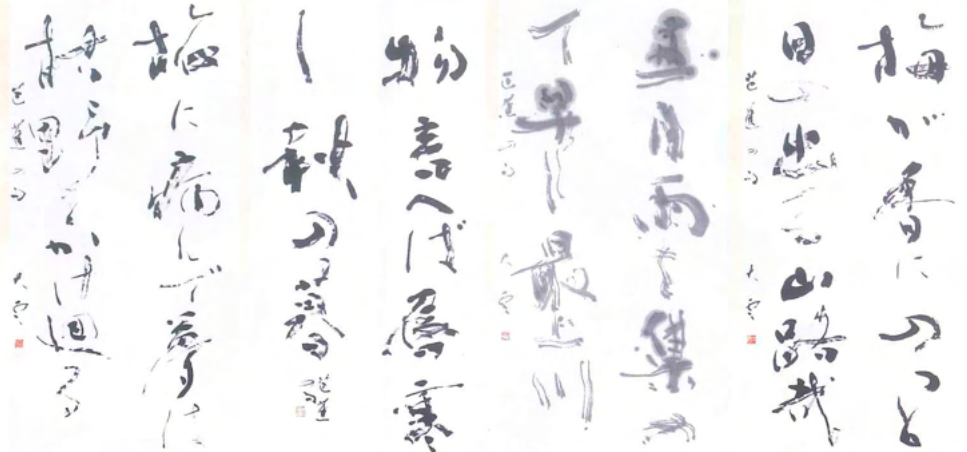 梅が香にのつと
日の出る山路哉
芭蕉の句 大雲
五月雨を集め
て早し最上川
芭蕉の句 大雲
物言へば唇寒
し秋の
芭蕉
旅に病んで夢は
枯野をかけ廻る
芭蕉の句 大雲